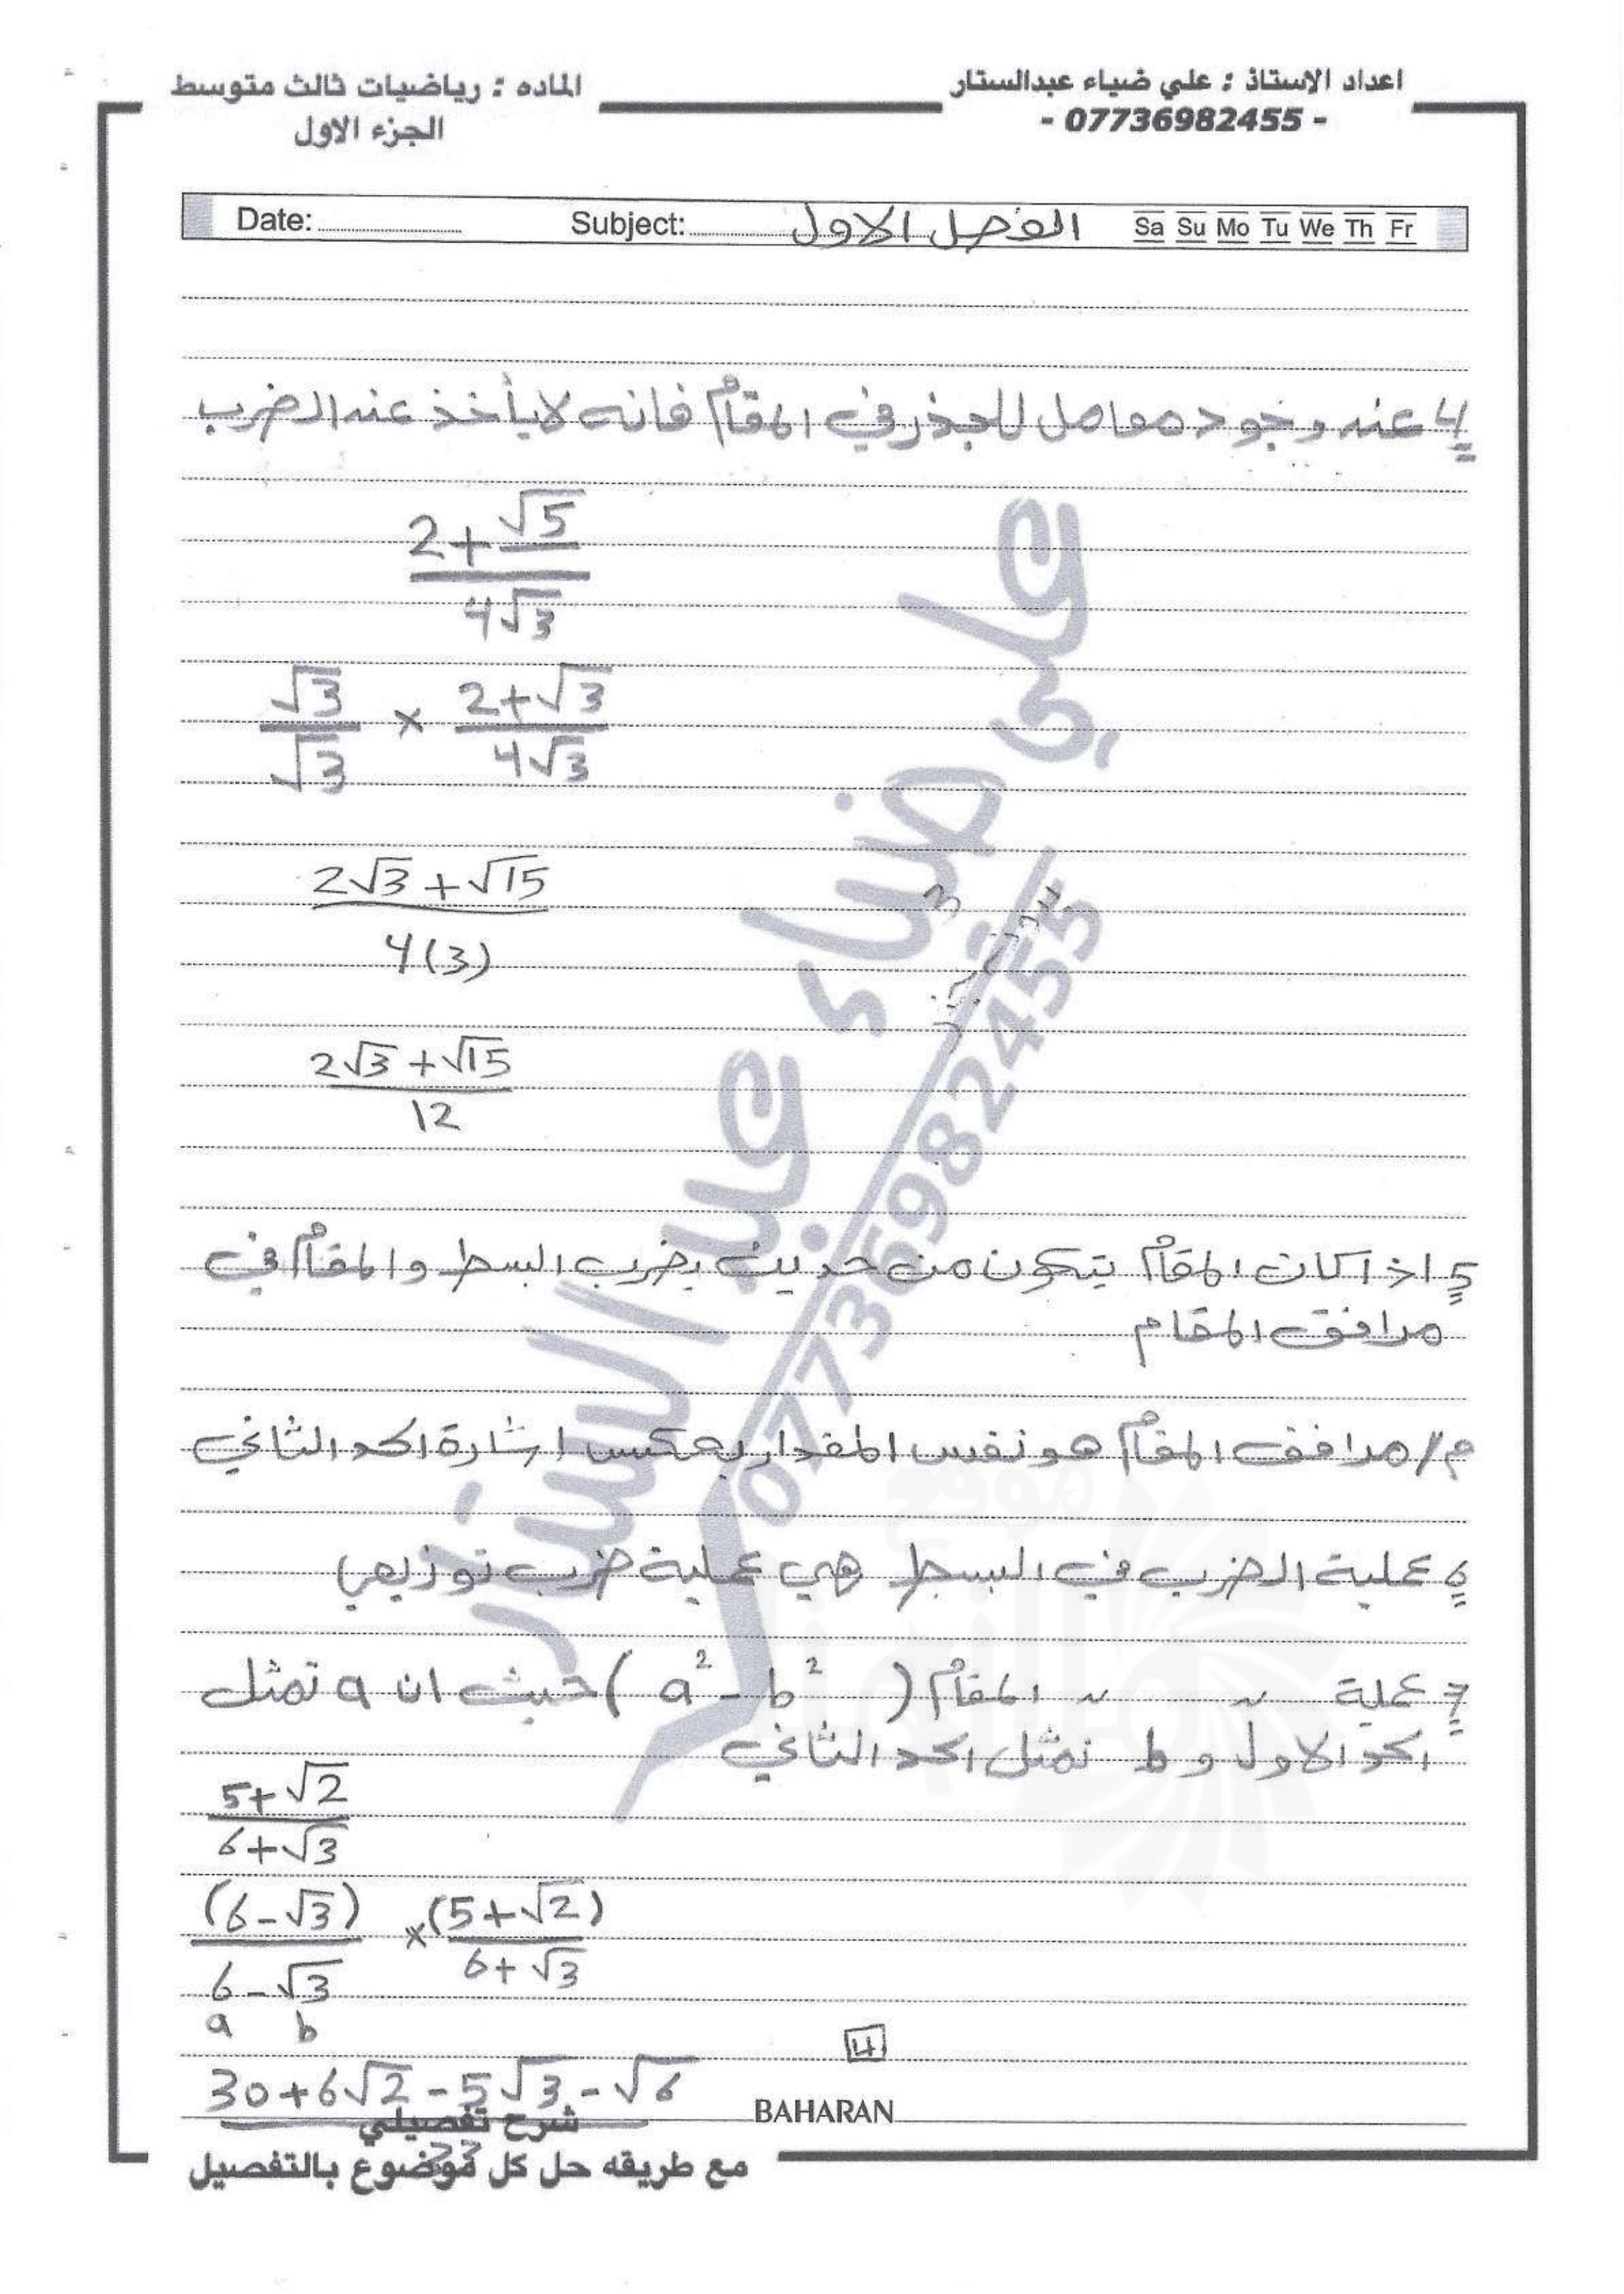 اعداد الاستاذ : علي ضياء عبدالستار
- 07736982455 -
الماده : رياضيات ثالث متوسط
الجزء الاول
Date: Subject: الفصل الاول Sa Su Mo Tu We Th Fr
4 عند وجود معامل للجذر في المقام فانه لا يأخذ عند الضرب
2+√5
4√3
√3 × 2+√3
√3 4√3
2√3+√15
4(3)
2√3+√15
12
5 اذا كان المقام يتكون من حدين يضرب البسط والمقام في
مرافق المقام
م// مرافق المقام هو نفس المقدار بعكس اشارة الحد الثاني
6 عملية الضرب في البسط هي عملية ضرب توزيعي
7 عملية ~ ~ المقام (a² - b²) حيث ان a تمثل
الحد الاول و b تمثل الحد الثاني
5+√2
6+√3
(6-√3) × (5+√2)
6-√3 6+√3
a b
30+6√2-5√3-√6
33
4
BAHARAN
شرح تفصيلي
مع طريقه حل كل موضوع بالتفصيل
علي ضياء عبد الستار
07736982455